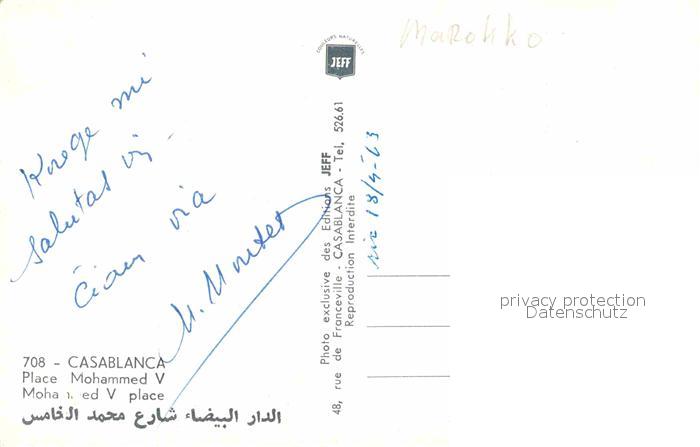 Marokko
COULEURS NATURELLES
JEFF
Korege mi
salutas vin
Ĉiam via
M. Montet
Photo exclusive des Editions JEFF
48, rue de Franceville - CASABLANCA - Tel, 526.61
Reproduction Interdite
18/4-63
privacy protection
Datenschutz
708 - CASABLANCA
Place Mohammed V
Moha ed V place
الدار البيضاء شارع محمد الخامس